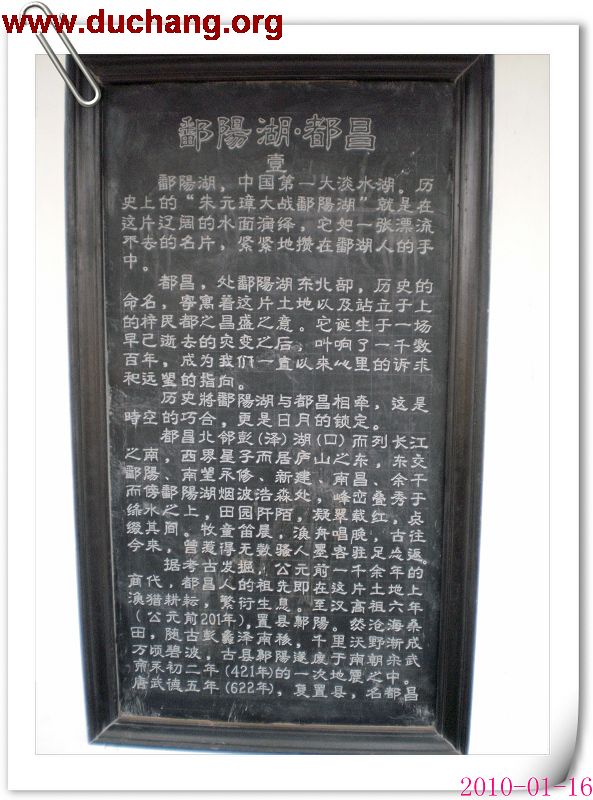 www.duchang.org
鄱陽湖·都昌
壹
鄱陽湖，中国第一大淡水湖。历
史上的“朱元璋大战鄱陽湖”就是在
这片辽阔的水面演绎，它如一张漂流
不去的名片，紧紧地攒在鄱湖人的手
中。
都昌，处鄱陽湖东北部，历史的
命名，寄寓着这片土地以及站立于上
的梓民都之昌盛之意。它诞生于一场
早已逝去的灾变之后，叫响了一千数
百年，成为我们一直以来心里的诉求
和远望的指向。
历史將鄱陽湖与都昌相牵，这是
時空的巧合，更是日月的锁定。
都昌北邻彭(泽)湖(口)而列长江
之南，西界星子而居庐山之东，东交
鄱陽、南望永修、新建、南昌、余干
而傍鄱陽湖烟波浩淼处，峰峦叠秀于
绿水之上，田园阡陌，凝翠载红，点
缀其间。牧童笛晨，渔舟唱晚，古往
今来，曾惹得无数骚人墨客驻足忘返。
据考古发掘，公元前一千余年的
商代，都昌人的祖先即在这片土地上
渔猎耕耘，繁衍生息。至汉高祖六年
(公元前201年)，置县鄡陽。然沧海桑
田，随古彭蠡泽南移，千里沃野渐成
万顷碧波，古县鄡陽遂废于南朝宋武
帝永初二年(421年)的一次地震之中。
唐武德五年(622年)，复置县，名都昌
2010-01-16